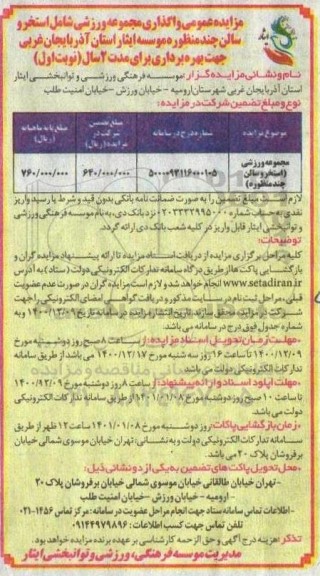 مزایده عمومی واگذاری مجموعه ورزشی شامل استخر و
سالن چند منظوره موسسه ایثار استان آذربایجان غربی
جهت بهره برداری برای مدت ۲ سال (نوبت اول)
نام و نشانی مزایده گزار: موسسه فرهنگی ورزشی و توانبخشی ایثار
استان آذربایجان غربی شهرستان ارومیه - خیابان ورزش - خیابان امنیت طلب
نوع و مبلغ تضمین شرکت در مزایده:
موضوع مزایده
شماره درج در سامانه
مبلغ تضمین شرکت در مزایده (ریال)
مبلغ پایه ماهیانه (ریال)
مجموعه ورزشی (استخر و سالن چند منظوره)
۵۰۰۰۰۹۳۱۱۶۰۰۰۱۰۵
۶۴۰/۰۰۰/۰۰۰
۷۶۰/۰۰۰/۰۰۰
لازم است مبلغ تضمین را به صورت ضمانت نامه بانکی بدون قید و شرط یا رسید واریز
نقدی به حساب شماره ۰۲۰۳۳۳۲۹۹۵۰۰۰ نزد بانک دی، به نام موسسه فرهنگی ورزشی
و توانبخشی ایثار قابل واریز در کلیه شعب بانک دی ارائه گردد.
توضیحات:
کلیه مراحل برگزاری مزایده از دریافت اسناد مزایده تا ارائه پیشنهاد مزایده گران و
بازگشایی پاکت ها از طریق درگاه سامانه تدارکات الکترونیکی دولت (ستاد) به آدرس
www.setadiran.ir انجام خواهد شد و لازم است مزایده گران در صورت عدم عضویت
قبلی، مراحل ثبت نام در سایت مذکور و دریافت گواهی امضای الکترونیکی را جهت
شرکت در مزایده محقق سازند. تاریخ انتشار مزایده در سامانه تاریخ ۱۴۰۰/۱۲/۰۹ و به
شماره جدول فوق درج در سامانه می باشد.
-مهلت زمان تحویل اسناد مزایده: از ساعت ۸ صبح روز دوشنبه مورخ
۱۴۰۰/۱۲/۰۹ تا ساعت ۱۶ روز سه شنبه مورخ ۱۴۰۰/۱۲/۱۷ می باشد از طریق سامانه
تدارکات الکترونیکی دولت می باشد.
-مهلت آپلود اسناد و ارائه پیشنهاد: از ساعت ۸ روز دوشنبه مورخ ۱۴۰۰/۱۲/۰۹
تا ساعت ۱۰ صبح روز دوشنبه مورخ ۱۴۰۱/۰۱/۰۸ از طریق سامانه تدارکات الکترونیکی
دولت می باشد.
-زمان بازگشایی پاکات: روز دوشنبه مورخ ۱۴۰۱/۰۱/۰۸ ساعت ۱۲ ظهر از طریق
سامانه تدارکات الکترونیکی دولت و به نشانی: تهران خیابان موسوی شمالی خیابان
برفروشان پلاک ۲۰ می باشد.
-محل تحویل پاکت های تضمین به یکی از دو نشانی ذیل:
- تهران خیابان طالقانی خیابان موسوی شمالی خیابان برفروشان پلاک ۲۰
- ارومیه - خیابان ورزش - خیابان امنیت طلب
-اطلاعات تماس سامانه ستاد جهت انجام مراحل عضویت در سامانه: مرکز تماس ۱۴۵۶-۰۲۱
تلفن تماس جهت کسب اطلاعات: ۰۹۱۴۴۹۷۹۸۹۶
تذکر: هزینه درج آگهی و حق الزحمه کارشناسی بر عهده برنده مزایده خواهد بود.
مدیریت موسسه فرهنگی، ورزشی و توانبخشی ایثار